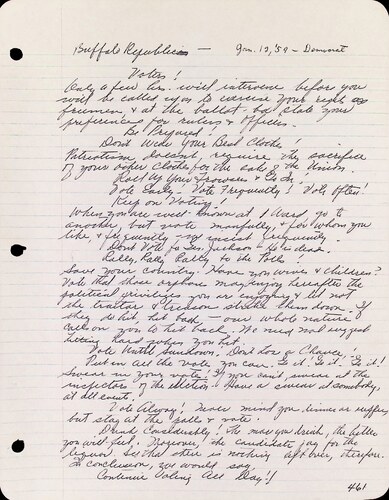 Buffalo Republic — Jan. 12, '59 – Democrat
Voters!
Only a few hrs. will intervene before you
will be called upon to exercise your right as
freemen & at the ballot-box state your
preferences for rulers & officers.
Be Prepared!
Don't Wear your Best Clothes!
Patriotism doesn't require the sacrifice
of your Clothes for the sake of the Union.
Roll Up Your Trowsers & Go In
Vote Early! Vote Frequently! Vote Often!
Keep on Voting
When you are well known at 1 Ward, go to
another, but vote manfully & for whom you
like, & frequently
Don't Vote for Gen. Jackson – He is dead.
Rally, Rally, Rally to the Polls!
Save your Country! Have you wives & children?
Vote that those orphans may enjoy hereafter the
political privileges you are enjoying & let not
the traitor of treason strike them down. If
they do hit, hit back — our whole nature
calls on you to hit back. We need not suggest
hitting hard when you hit.
Vote Until Sundown. Don't Lose a Chance!
Put in all the votes you can. Do it! Do it! Do it!
Swear in your vote & if you can't swear at the
inspectors of the election. Have a swear at somebody,
at all events.
Vote Alway! Never mind your dinner or supper
but stay at the polls & vote.
Drink Considerably! The more you drink, the better
you will feel. Moreover, the candidate pay for the
liquor. See that there is nothing left over, therefore.
In conclusion, we would say
Continue Voting All Day!!
461